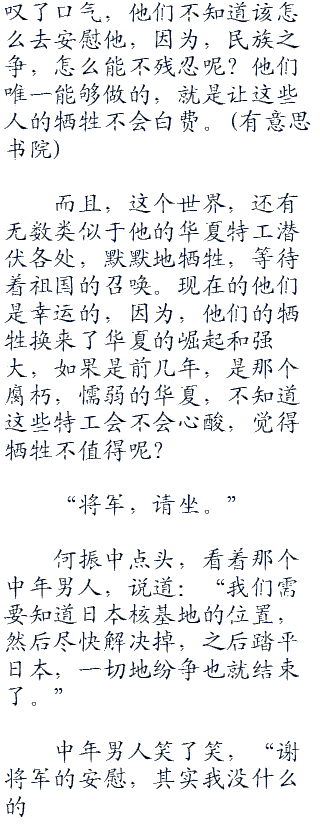 叹了口气，他们不知道该怎
么去安慰他，因为，民族之
争，怎么能不残忍呢？他们
唯一能够做的，就是让这些
人的牺牲不会白费。(有意思
书院)
而且，这个世界，还有
无数类似于他的华夏特工潜
伏各处，默默地牺牲，等待
着祖国的召唤。现在的他们
是幸运的，因为，他们的牺
牲换来了华夏的崛起和强
大，如果是前几年，是那个
腐朽，懦弱的华夏，不知道
这些特工会不会心酸，觉得
牺牲不值得呢？
“将军，请坐。”
何振中点头，看着那个
中年男人，说道：“我们需
要知道日本核基地的位置，
然后尽快解决掉，之后踏平
日本，一切地纷争也就结束
了。”
中年男人笑了笑，“谢
将军的安慰，其实我没什么
的